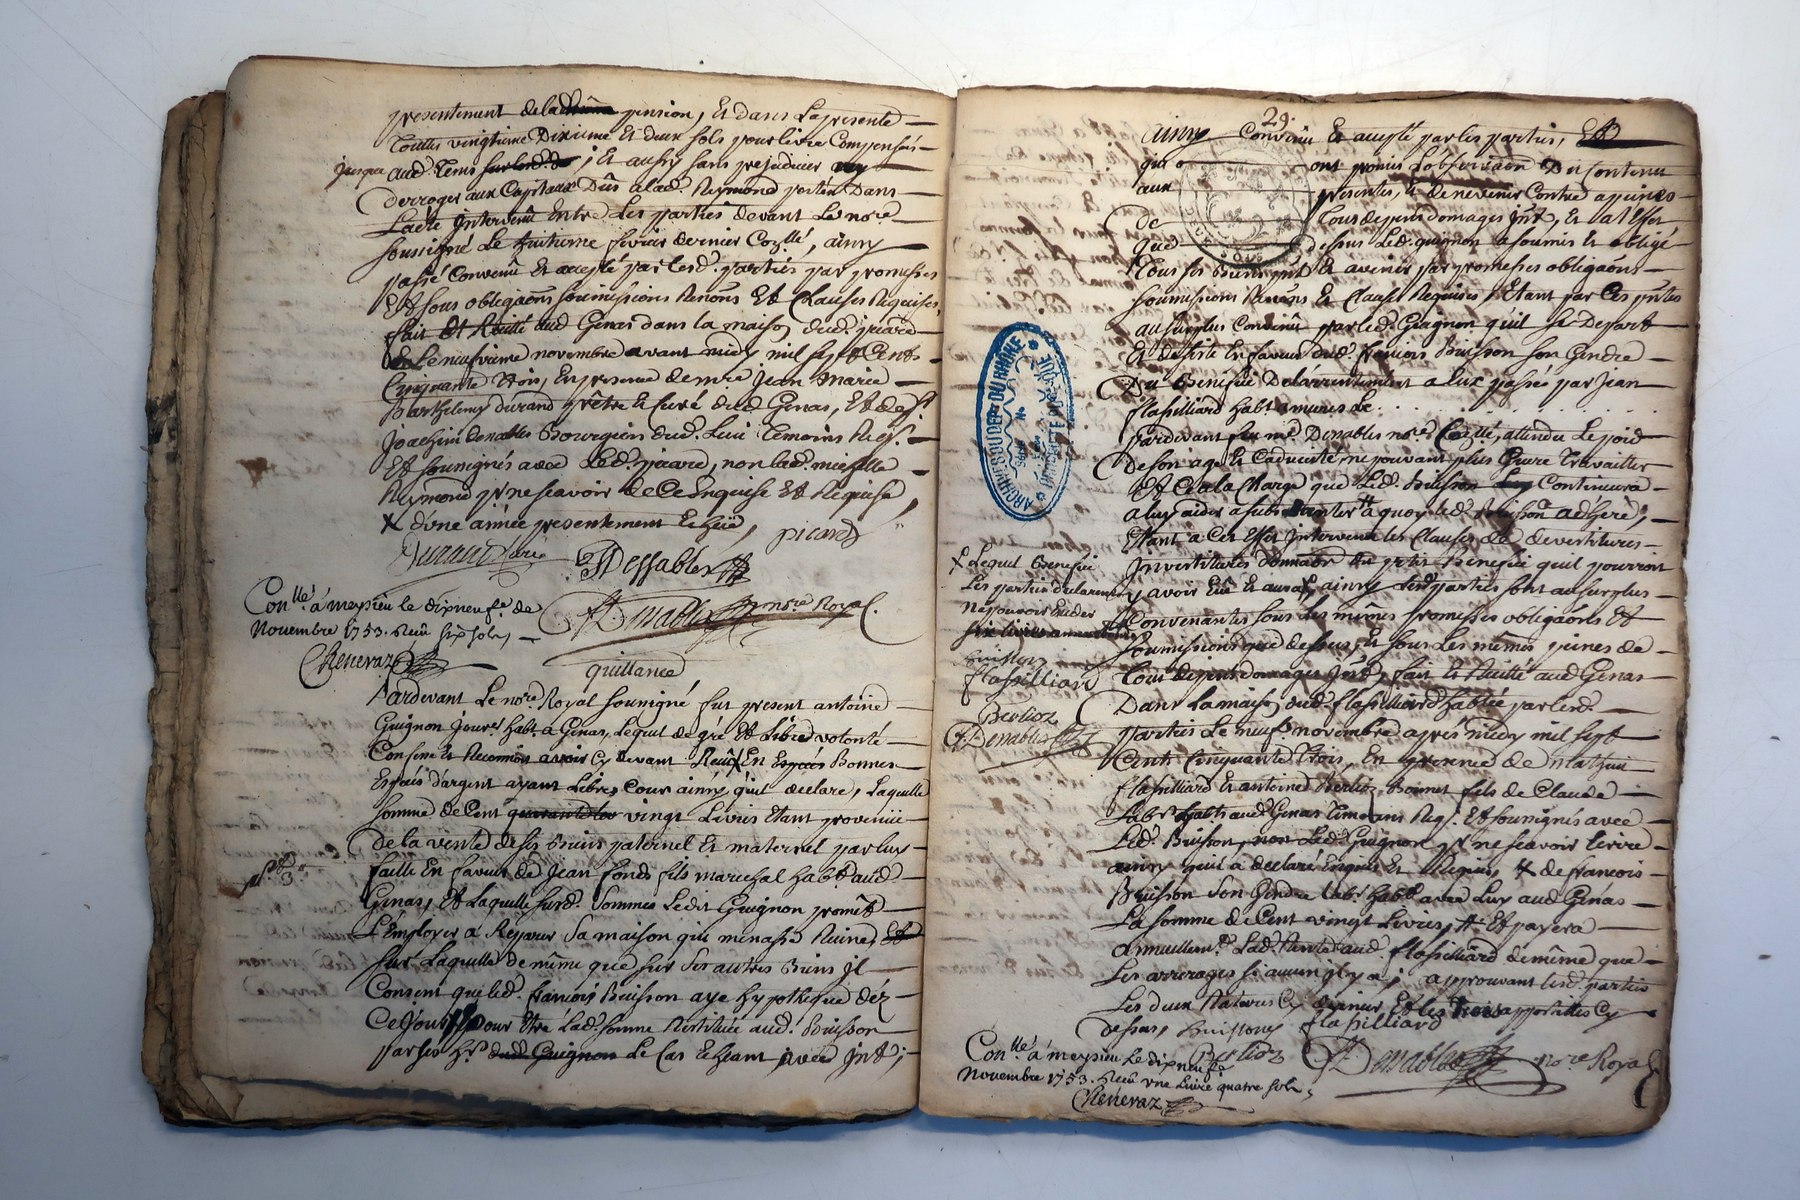 presentement de lad. pension, Et dans La presente
Toutes vingtieme Dixieme Et deux sols pour livre Compensés
jusque aud. Tems ; Et aussy sans prejudicier
Derroger aux Capitaux Dûs a lad. Reymond portés Dans
L'acte Intervenû Entre Les parties devant Le no.re
soussigné Le huitieme fevrier dernier Con.llé, ainsy
passé Convenû Et accepté par lesd. parties par promesses
Et sous obligaôns soumissions Renons Et Clauses Requises,
fait Et Recitté aud Genas dans la maison dud. picard
Le neufvieme novembre avant midy mil sept Cents
Cinquante trois, En presence de m.re Jean Marie
Barthelemy durand prêtre Et Curé dud Genas, Et de s.r
Joachim Denables Bourgeois dud. Lieu Temoins Req.s
Et soussignés avec Led. picard, non lad. michelle
Reymond p.r ne scavoir de Ce Enquise Et Requise,
X d'une année presentement Echeüe, picard
Durand Curé
JDessables
Denables no.re Royal.
Con.llé a meysieu le dixneuf.e de
Novembre 1753. Reçu six sols
Cheneraz
quittance
Pardevant Le no.re Royal soussigné fut present antoine
Guignon Jour.r hab.t a Genas, Lequel de gré Et Libre volonté
Confesse Et Reconnois avoir Cy devant Reçû X En Espéces Bonnes
Espéces d'argent ayant Libres Cour ainsy qu'il declare, Laquelle
somme de Cent quarante vingt Livres Etant provenüe
De la vente de ses Biens paternel Et maternel par luy
faitte En faveur de Jean fond fils marechal hab.t aud
Genas, Et Laquelle susd. Somme Ledit Guignon promêt
L'Employer a Réparer Sa maison qui menasse Ruine, Et
sur Laquelle de même que sur ses autres Biens Jl
Consent que led. françois Buisson aye hypotheque déz
Ce Jour pour être Lad. somme Restituée aud. Buisson
par ses h.rs dud. Guignon Le Cas Echeant avec Jnt ;
29.
ainsy Convenû Et accepté par les parties, Et
qui ont promis L'observaôn Du Contenu
aux presentes, Et de ne venir Contre a peines
De Tous depens domages Jnt, Et a l'Effet
Que dessus Led. guignon a soûmis Et obligé
Tous ses Biens pnt Et avenir par promesses obligaôns
soumissions Renons Et Clauses Requises ; Etant par Ces pntes
au surplus Convenû par led. Guignon qu'il se Depart
Et desiste En faveur dud. françois Buisson son Gendre
Du Benefice De l'arrentement a luy passé par Jean
flassilliard habt a mures Le . . . . .
Pardevant feu me. Denables no.re Con.llé, attendu Le poid
De son age Et Caducité, ne pouvant plus Guere Travailler
Et Ce a la Charge que Led. Buisson Continuera
a luy aider a subsister a quoy led. Buisson adhéré,
Etant a Cet Effet Intervenu les Clauses de devestitures
Investitures Donnaôn du pnt Benefice qu'il pourroit
y avoir Eûe Et aura X, ainsy Lesd parties sont au surplus
Convenantes sous Les mêmes promesses obligaôns Et
soumissions que dessus, Et sous Les mêmes peines de
Tous depens domages Jnt, fait Et Recitté aud Genas
Dans La maison dud. flassilliard habitée par lesd.
parties Le neuf novembre après midy mil sept
Cent Cinquante trois, En presence de Mathieu
flassilliard Et antoine Berlioz Boimet fils de Claude
Lab.rs habts aud Genas Temoins Req.s Et soussignés avec
Led. Buisson, non Led. Guignon p.r ne scavoir Ecrire
ainsy qu'il a declaré Enquis Et Requis, X de françois
Buisson Son Gendre Lab.r hab.t avec Luy aud Génas
La somme de Cent vingt Livres, # Et payera
annuellem.t Lad. Rente aud. flassilliard de même que
Les arrerages si aucun Jl y a ; approuvant lesd. parties
Les deux Ratures Cy derriere, Et les trois apostilles Cy
dessus, Buisson flassilliard
Berlioz Denables no.re Royal
X Lequel Benefice
Les parties declarent
Ne pouvoir Exceder
six livres
buisson
flassilliard
Berlioz
Denables
ARCHIVES DU DEPT. DU RHÔNE
Con.llé a meysieu Le dixneuf.e
Novembre 1753. Reçu vne Livre quatre sols
Cheneraz